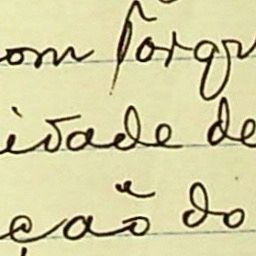 om forqu
idade de
ção do